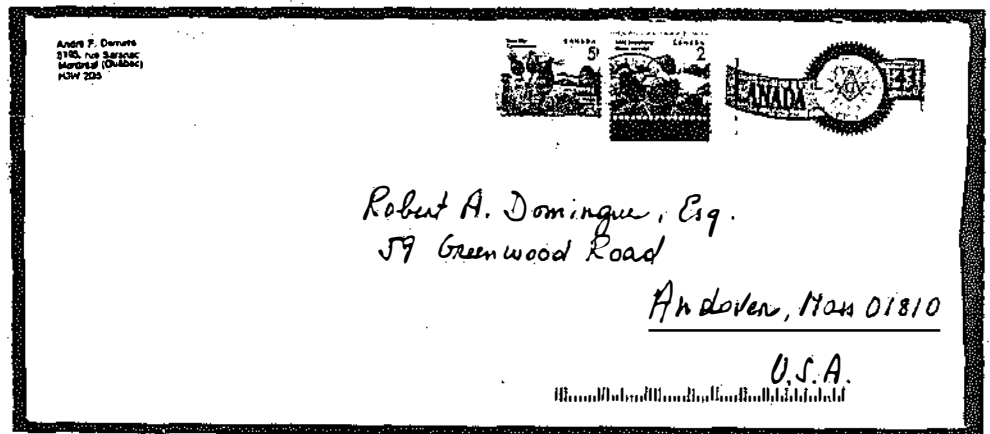 André F.
5195, rue Saranac
Montréal (Québec)
H3W 2G5
CANADA
5
CANADA
2
CANADA
43
G
Robert A. Domingue, Esq.
59 Greenwood Road
Andover, Mass 01810
U.S.A.